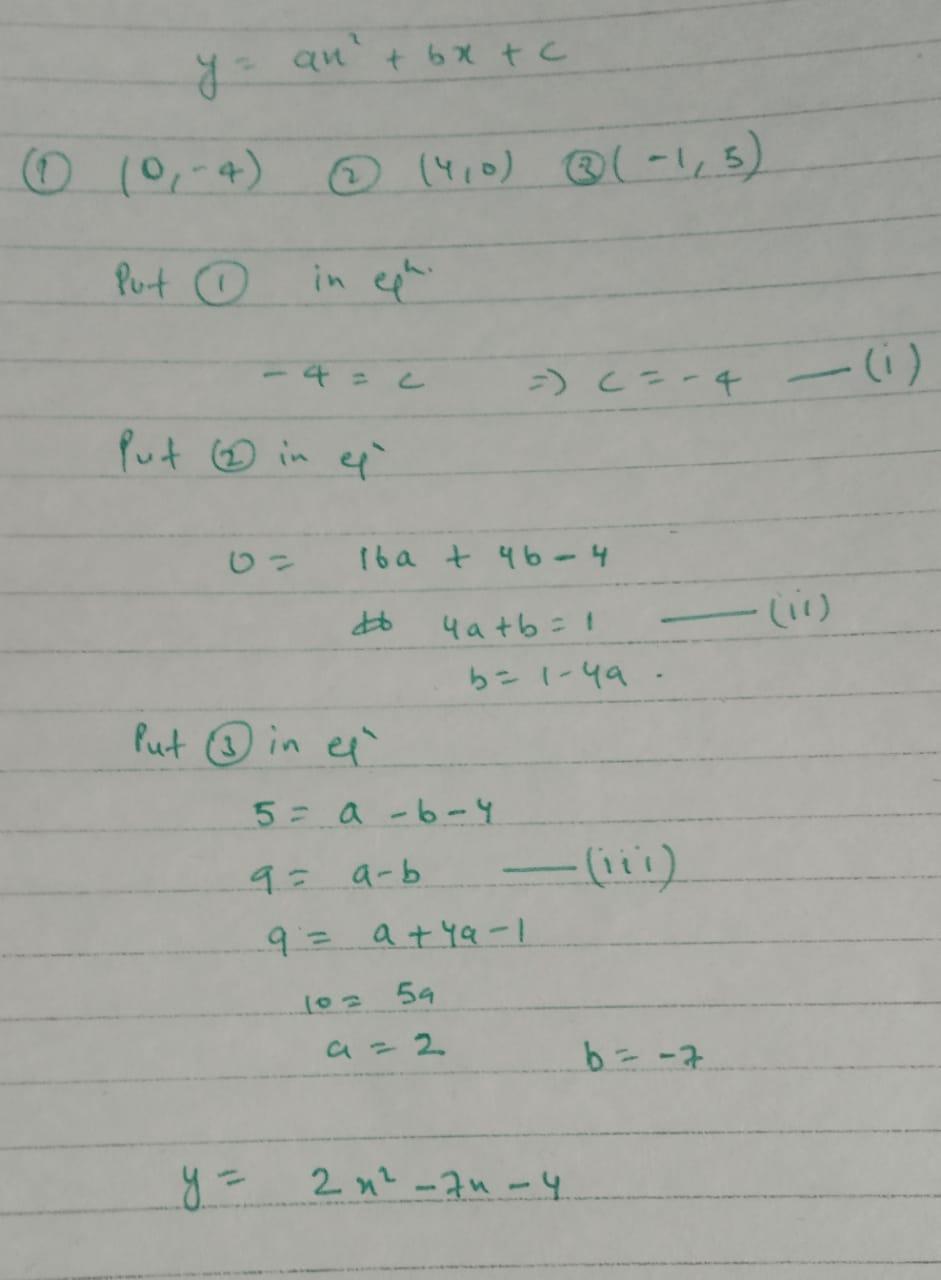 y = ax² + bx + c
① (0,-4) ② (4,0) ③ (-1,5)
Put ① in eqn.
-4 = c => c = -4 —(i)
Put ② in eqn
0 = 16a + 4b - 4
4a+b = 1 —(ii)
b = 1-4a .
Put ③ in eqn
5 = a - b - 4
9 = a-b —(iii)
9 = a + 4a - 1
10 = 5a
a = 2 b = -7
y = 2x² - 7x - 4